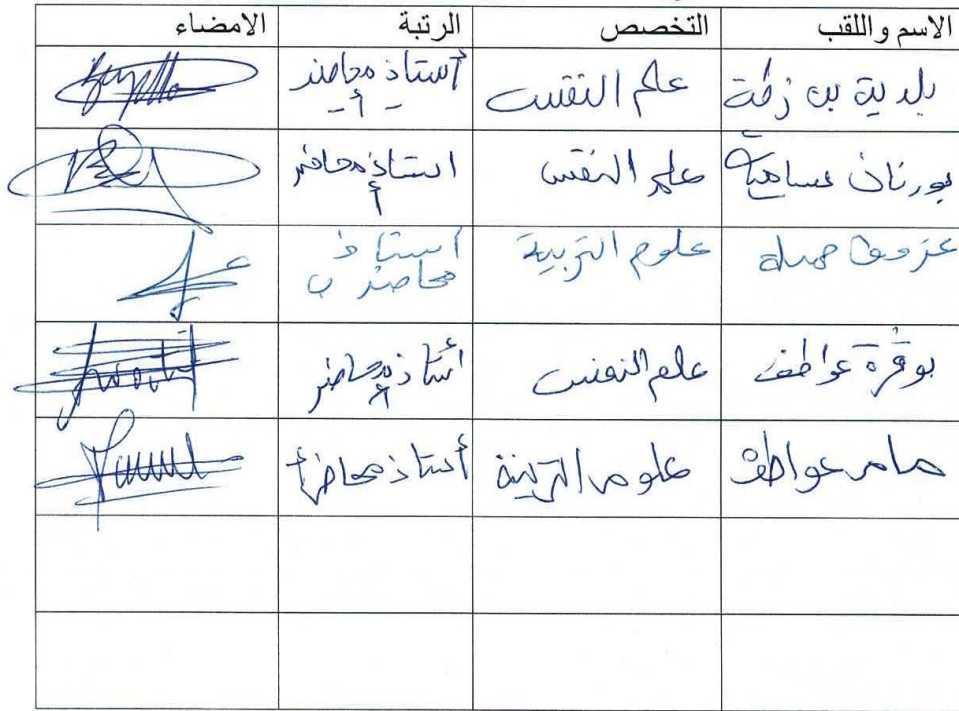 الاسم واللقب التخصص الرتبة الامضاء
بلدية بن زطة علم النفس أستاذ محاضر
- أ -
بورنان سامية علم النفس استاذ محاضر
أ
علوم التربية استاذ
محاضر ب
بوقرة عواطف علم النفس أستاذ محاضر
أ
مام عواطف علوم التربية أستاذ محاضر أ